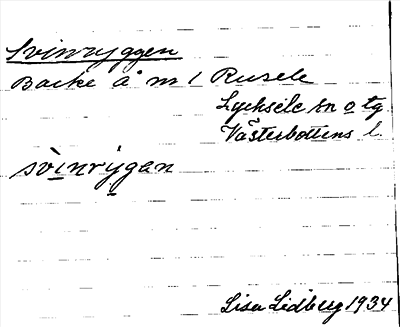 Svinryggen
Backe å m / Rusele
Lycksele sn o tg
Västerbottens l.
svinrygen
Lisa Lidberg 1934